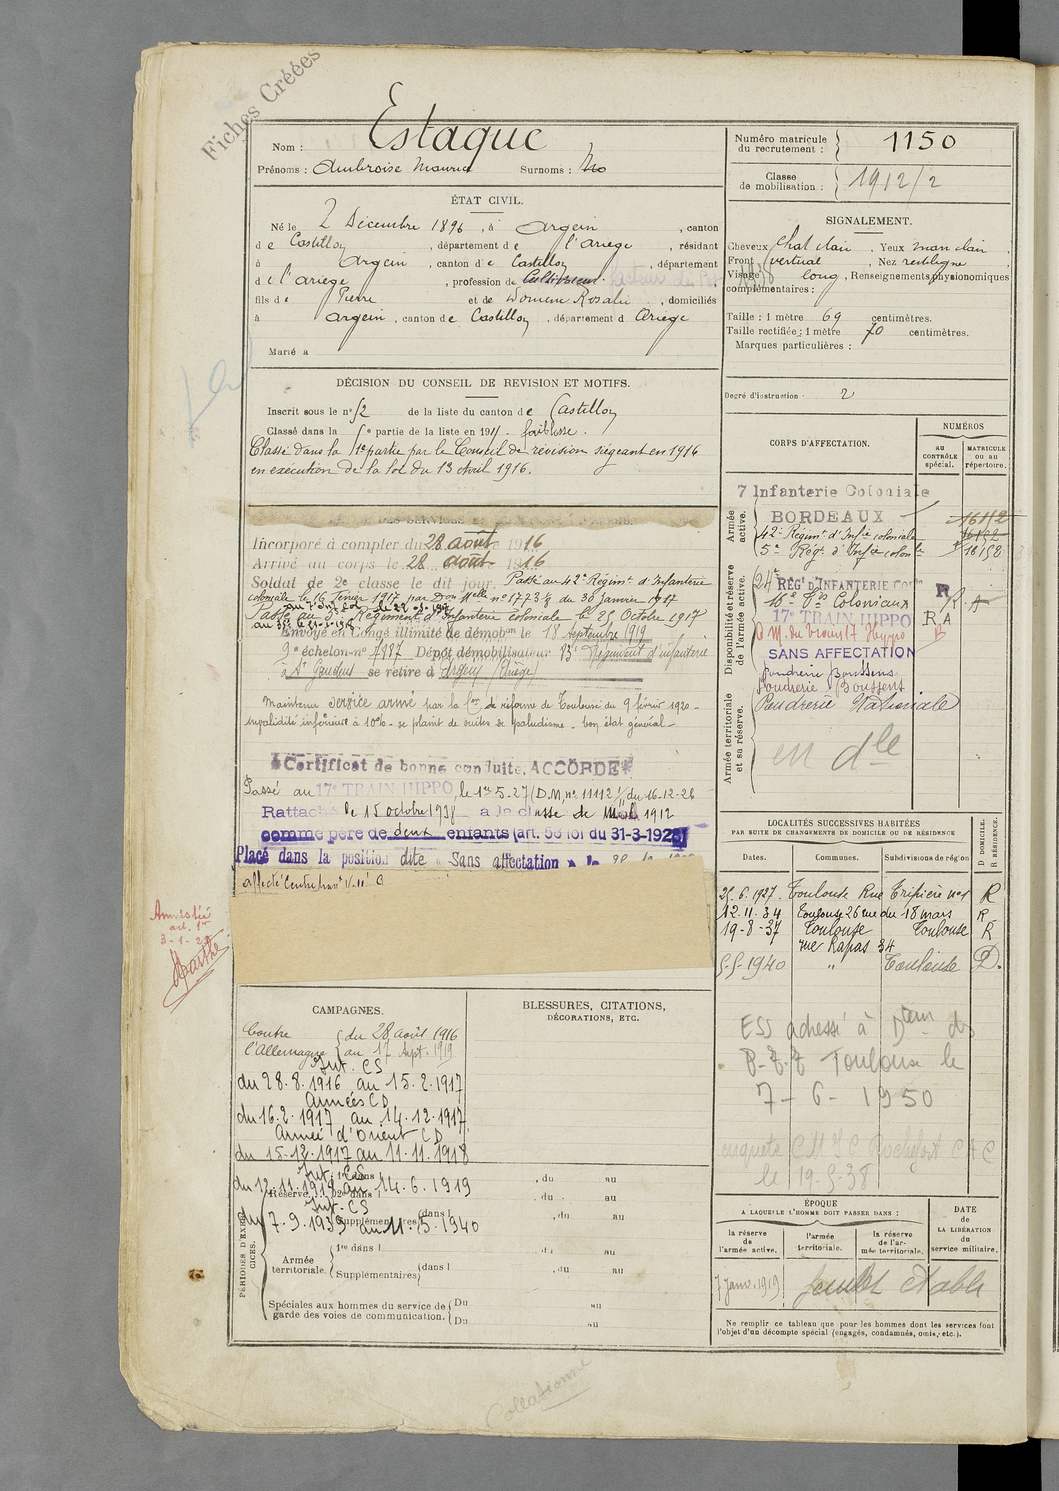 Fiches Créées
Nom : Estaque
Prénoms : Ambroise Maurice Surnoms : No
Numéro matricule du recrutement : 1150
Classe de mobilisation : 1912/2
ÉTAT CIVIL.
Né le 2 Décembre 1896, à Argein, canton
de Castillon, département de l'ariège, résidant
à Argein, canton de Castillon, département
de l'ariège, profession de Cultivateur facteur des
fils de Pierre et de Domenc Rosalie, domiciliés
à Argein, canton de Castillon, département d Ariège
Marié à
SIGNALEMENT.
Cheveux chat clair, Yeux mar clair
Front vertical, Nez rectiligne
Visage long, Renseignements physionomiques
complémentaires :
Taille : 1 mètre 69 centimètres.
Taille rectifiée : 1 mètre 70 centimètres.
Marques particulières :
Degré d'instruction : 2
DÉCISION DU CONSEIL DE REVISION ET MOTIFS.
Inscrit sous le n° 52 de la liste du canton de Castillon
Classé dans la 5e partie de la liste en 191 . faiblesse.
Classé dans la 1e partie par le Conseil de révision siégeant en 1916
en exécution de la loi du 13 Avril 1916.
Incorporé à compter du 28 août 1916
Arrivé au corps le 28 août 1916
Soldat de 2e classe le dit jour. Passé au 42e Régiment d'Infanterie
coloniale le 16 février 1917 par Don Melle n° 1773 ⅔ du 30 Janvier 1917
Passé au 5e Régiment d'Infanterie coloniale le 25 Octobre 1917
Envoyé en Congé illimité de démobon le 18 Septembre 1919
9e échelon n° 7997 Dépôt démobilisateur 83e Régiment d'infanterie
à St Gaudens se retire à Argein (Ariège)
Maintenu service armé par la 1re de réforme de Toulouse du 9 février 1920 -
invalidité inférieure à 10% - se plaint de suites de paludisme - bon état général -
Certificat de bonne conduite, ACCORDÉ
Passé au 17e TRAIN HIPPO, le 1er 5.27 (D.M. n° 11112 1/11 du 16-12-26
Rattaché le 15 octobre 1938 à la classe de Mob 1912
comme père de deux enfants (art. 58 loi du 31-3-1928)
Placé dans la position dite « Sans affectation » le
affecté Centre
Amnistié
art. 1er
3-1-2
CORPS D'AFFECTATION.
NUMÉROS
au CONTRÔLE spécial.
MATRICULE ou au répertoire.
Armée active.
7 Infanterie Coloniale
BORDEAUX
16112
42e Régimt d'Infie coloniale
5e Régt d'Infie coloniale 16158
Disponibilité et réserve de l'armée active.
24e REG' D'INFANTERIE COLle R
16e Coloniaux R.A
17e TRAIN HIPPO R A
SANS AFFECTATION
poudrerie Boussens
Poudrerie Boussens
Armée territoriale et sa réserve.
Poudrerie Nationale
en dle
LOCALITÉS SUCCESSIVES HABITÉES
PAR SUITE DE CHANGEMENTS DE DOMICILE OU DE RÉSIDENCE
D DOMICILE. R RÉSIDENCE.
Dates. Communes. Subdivisions de région
25.6.1927. Toulouse Rue Tripière n°1 R
12.11.34 Toulouse 26 rue du 18 mars R
19-8-37 Toulouse Toulouse R
rue Rapas 34
5-5-1940 " Toulouse D.
ESS adressé à Dion des
P.T.T Toulouse le
7-6-1950
enquete Rochefort
le 19.5.38
CAMPAGNES.
Contre l'Allemagne { du 28 août 1916
au 17 Sept. 1919
Int. CS
du 28.8.1916 au 15.2.1917
Armées CD
du 16.2.1917 au 14.12.1917
Armée d'Orient CD
du 15.12.1917 au 11.11.1918
Int. CS
du 12.11.1918 au 14.6.1919
Int. CS
du 7.9.1939 au 11.5.1940
BLESSURES, CITATIONS,
DÉCORATIONS, ETC.
PÉRIODES D'EXERCICES.
Réserve. 1re dans l , du au
2e dans l , du au
Supplémentaires (dans l , du au
Armée territoriale. 1re dans l , du au
Supplémentaires (dans l , du au
Spéciales aux hommes du service de garde des voies de communication. Du au
Du au
ÉPOQUE
A LAQUELLE L'HOMME DOIT PASSER DANS :
la réserve de l'armée active.
l'armée territoriale.
la réserve de l'armée territoriale.
DATE de LA LIBÉRATION du service militaire.
7 Janv. 1919
Ne remplir ce tableau que pour les hommes dont les services font
l'objet d'un décompte spécial (engagés, condamnés, omis, etc.).
Collationné